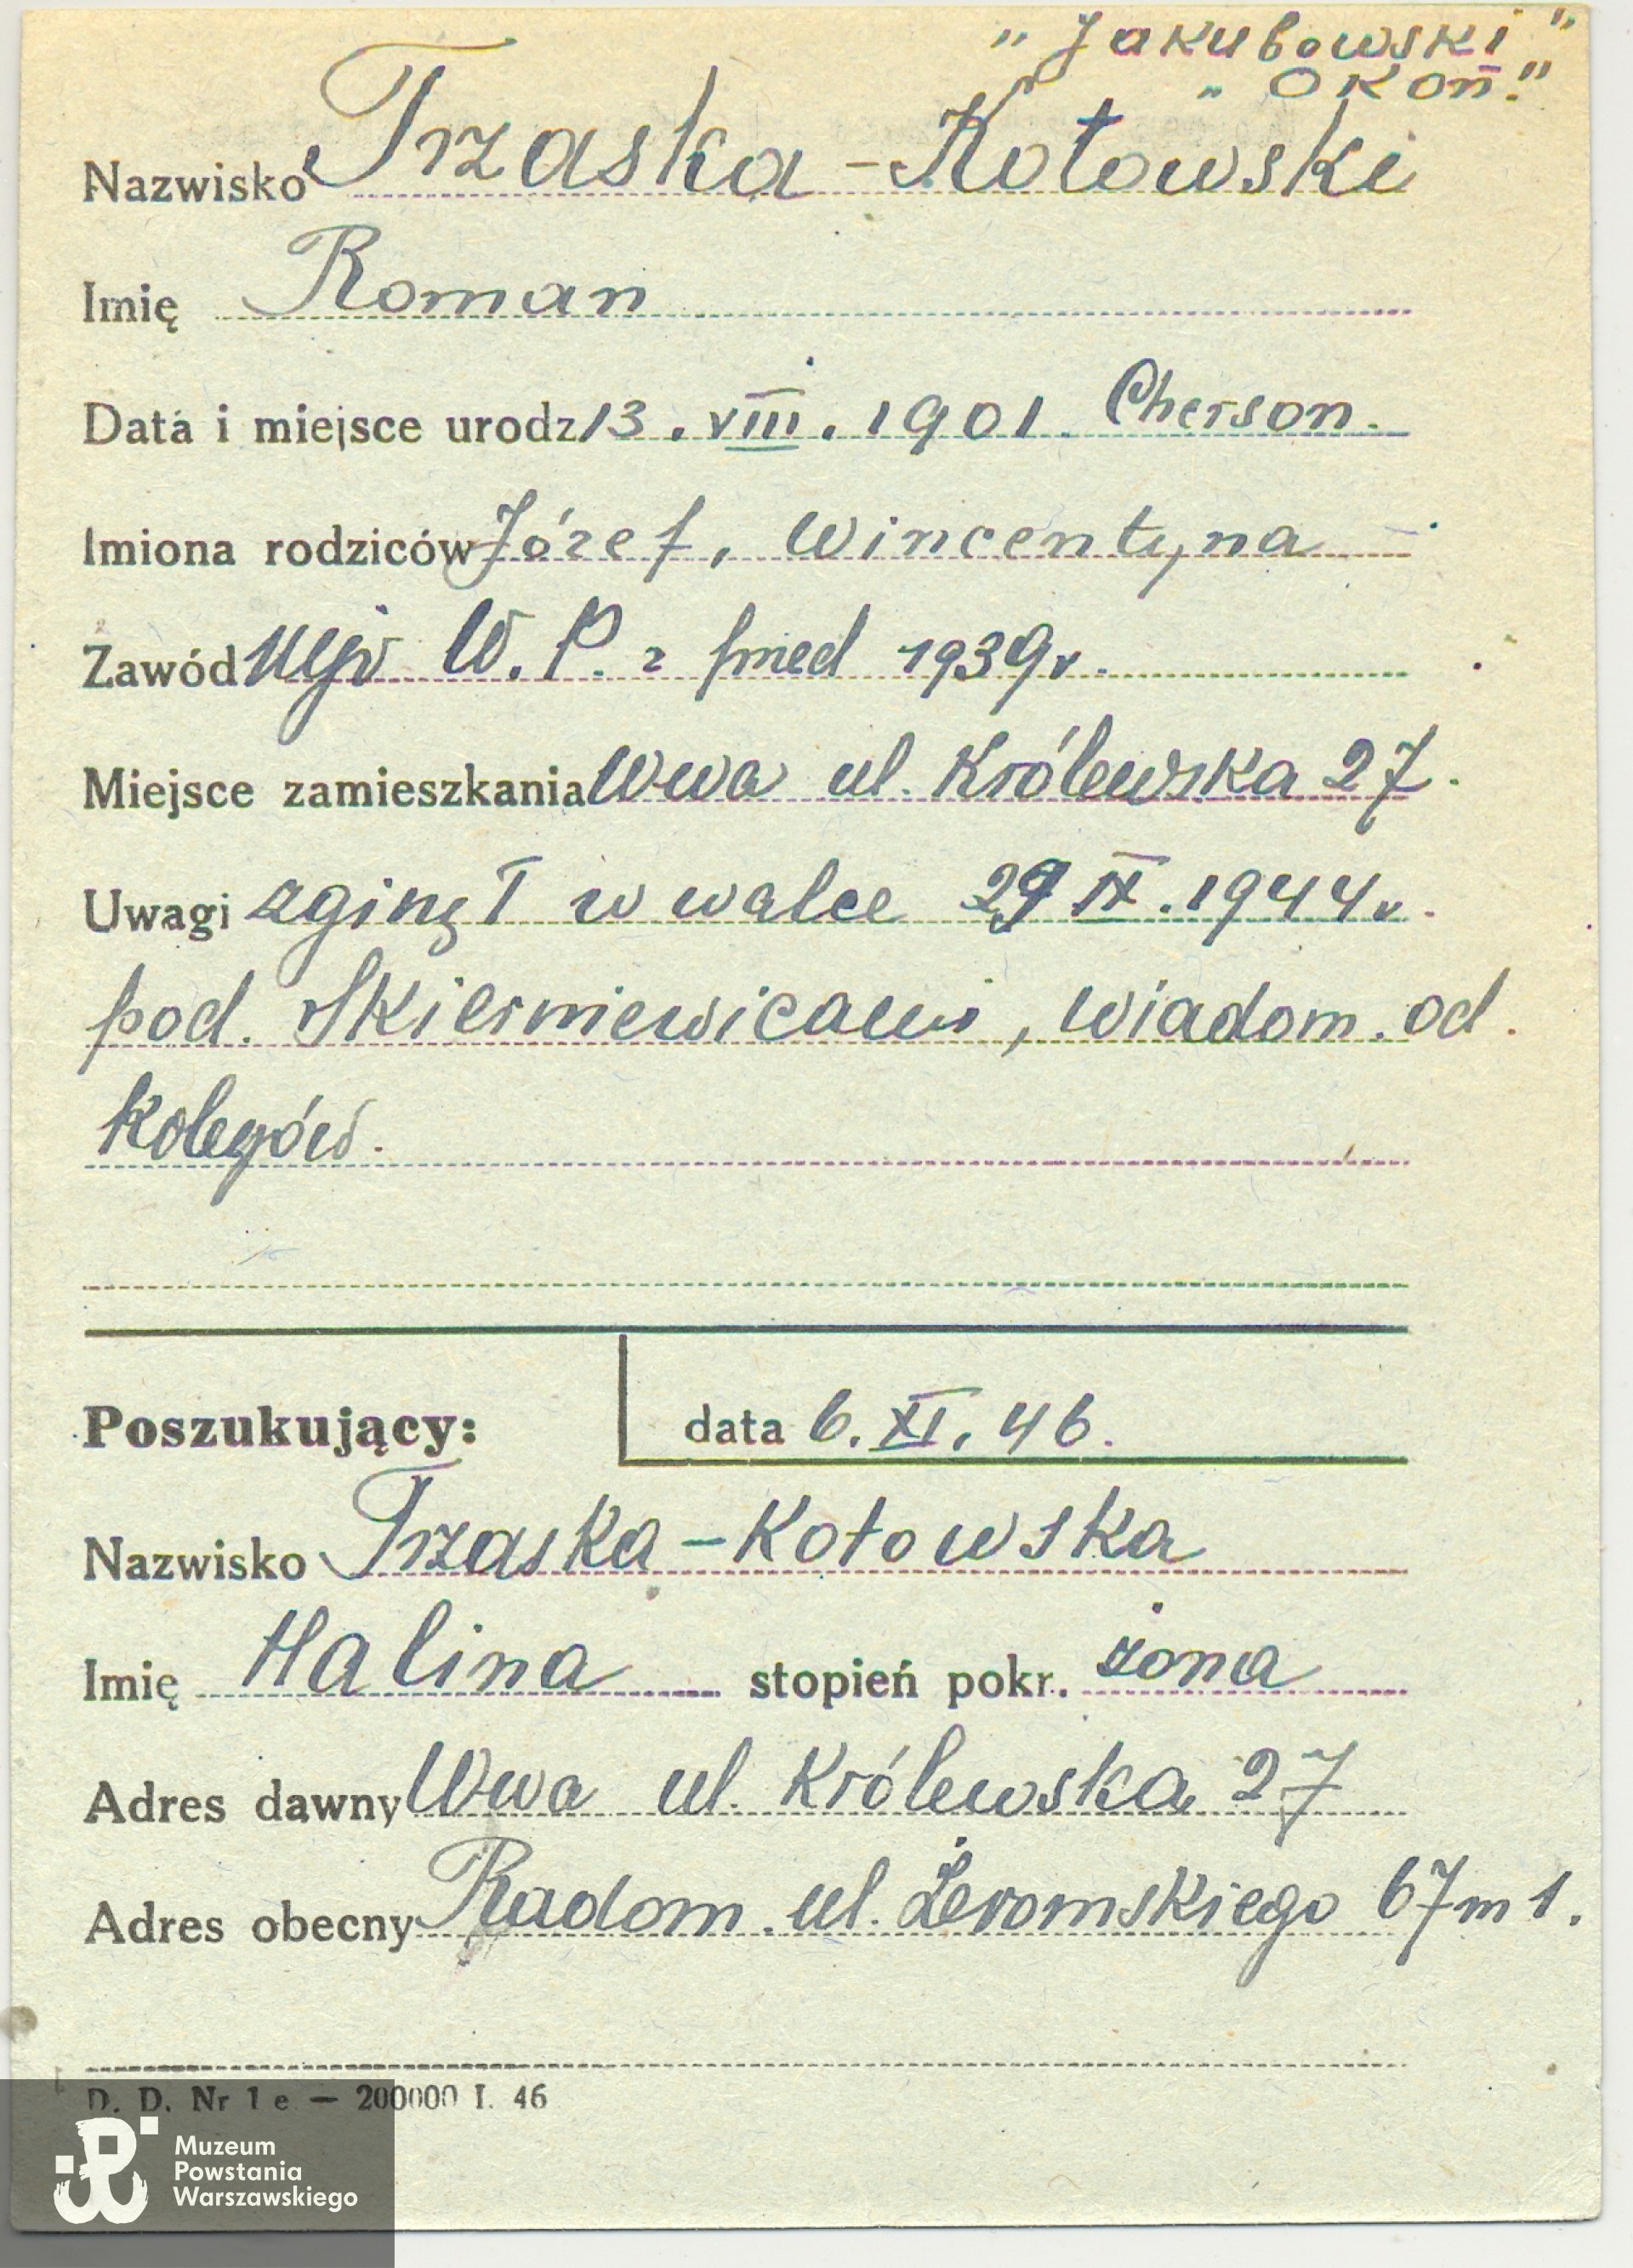 „Jakubowski”
„Okoń.”
Nazwisko Trzaska-Kotowski
Imię Roman
Data i miejsce urodz 13. VIII. 1901. Cherson.
Imiona rodziców Józef, Wincentyna
Zawód Mjr W. P. z przed 1939 r.
Miejsce zamieszkania Wwa ul. Królewska 27.
Uwagi zginął w walce 29 IX. 1944 r.
pod. Skierniewicami, wiadom. od
kolegów.
Poszukujący: data 6. XI. 46.
Nazwisko Trzaska-Kotowska
Imię Halina stopień pokr. żona
Adres dawny Wwa ul. Królewska 27
Adres obecny Radom. ul. Żeromskiego 67 m 1.
D. D. Nr 1 e — 200000 I. 46
Muzeum
Powstania
Warszawskiego